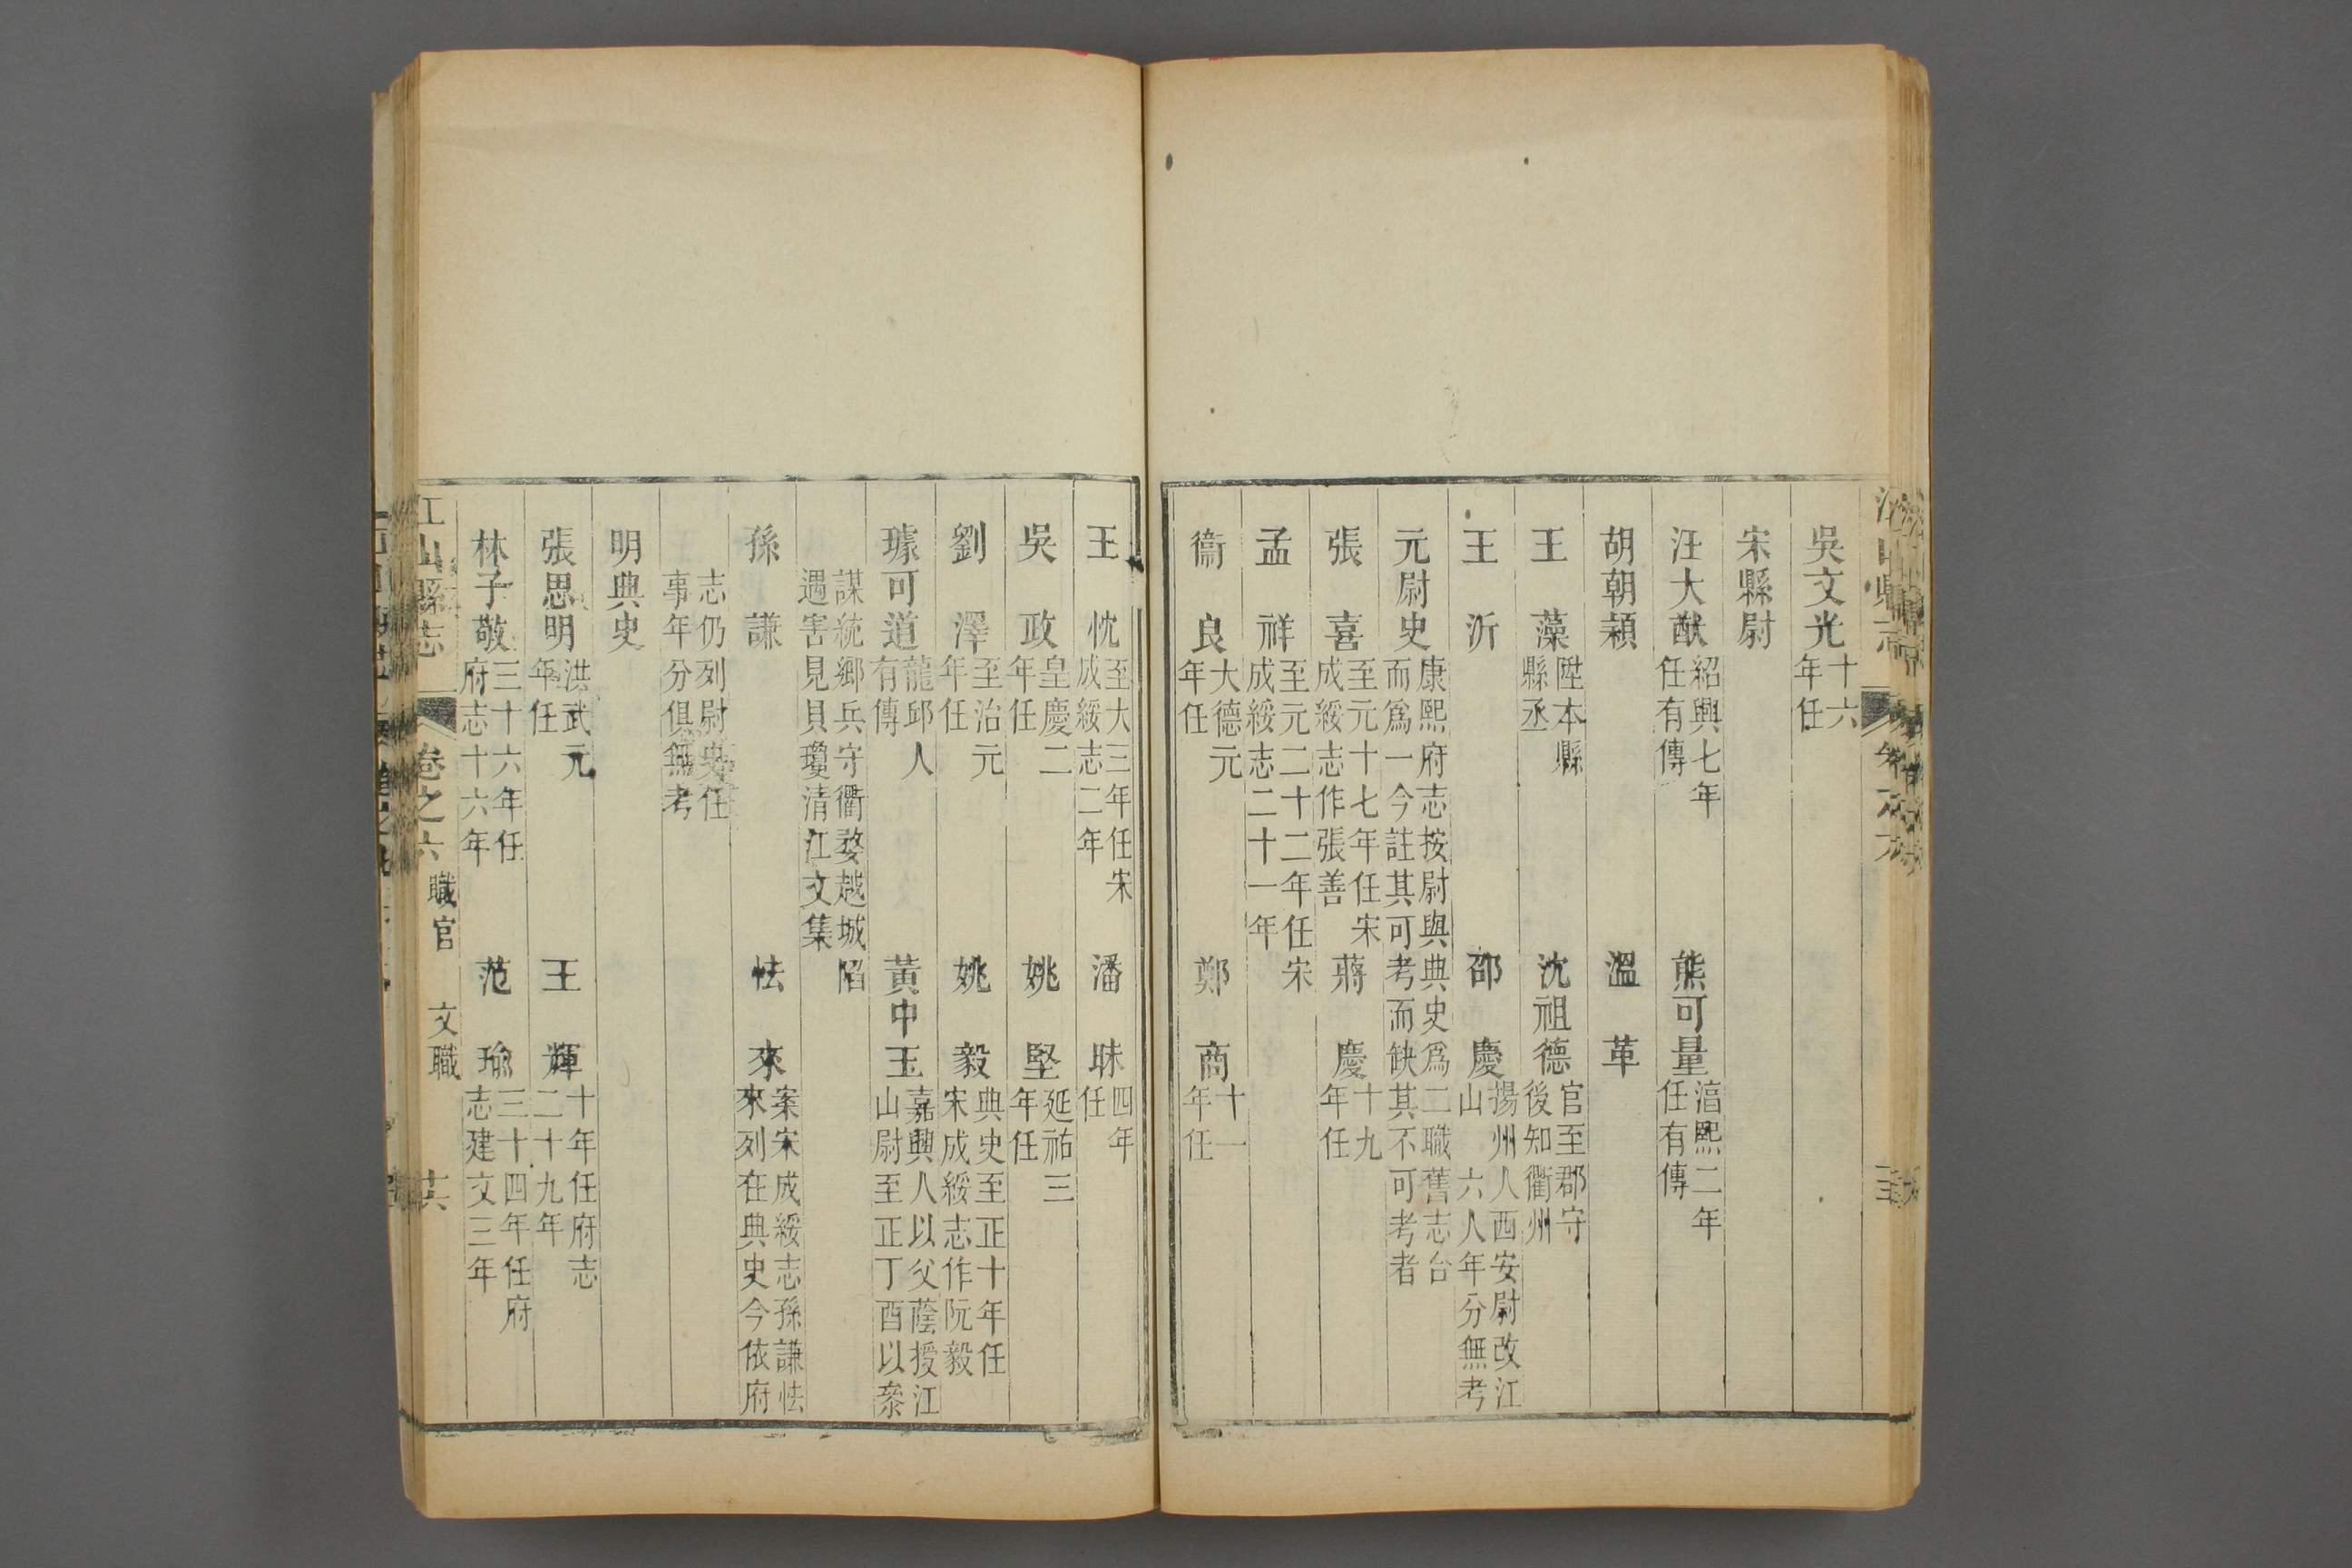 吳文光 十六年任
宋縣尉
汪大猷 紹興七年任有傳 熊可量 淳熙二年任有傳
胡朝穎 溫革
王藻 陞本縣縣丞 沈祖德 官至郡守後知衢州
王沂 邵慶 揚州人西安尉改江山 六人年分無考
元尉史 康熙府志按尉與典史爲二職舊志台而爲一今註其可考而缺其不可考者
張喜 至元十七年任宋成綏志作張善 蔣慶 十九年任
孟祥 至元二十二年任宋成綏志二十一年
衞良 大德元年任 鄭商 十一年任
王忱 至大三年任宋成綏志二年 潘昧 四年任
吳政 皇慶二年任 姚堅 延祐三年任
劉澤 至治元年任 姚毅 典史至正十年任宋成綏志作阮毅
璩可道 龍邱人有傳 黃中玉 嘉興人以父蔭授江山尉至正丁酉以叅
謀統鄉兵守衢婺越城陷遇害見貝瓊清江文集
孫謙 怯來 案宋成綏志孫謙怯來列在典史今依府
志仍列尉史任事年分俱無考
明典史
張思明 洪武元年任 王輝 十年任府志二十九年
林子敬 三十六年任府志十六年 范瑜 三十四年任府志建文三年
江山縣志 卷之六 職官 文職